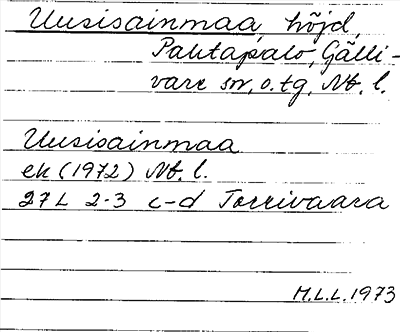 Uusisainmaa, höjd,
Pahtapalo, Gälli-
vare sn, o.tg, Nb. l.
Uusisainmaa
ek (1972) Nb. l.
27L 2-3 c-d Torrivaara
M.L.L. 1973